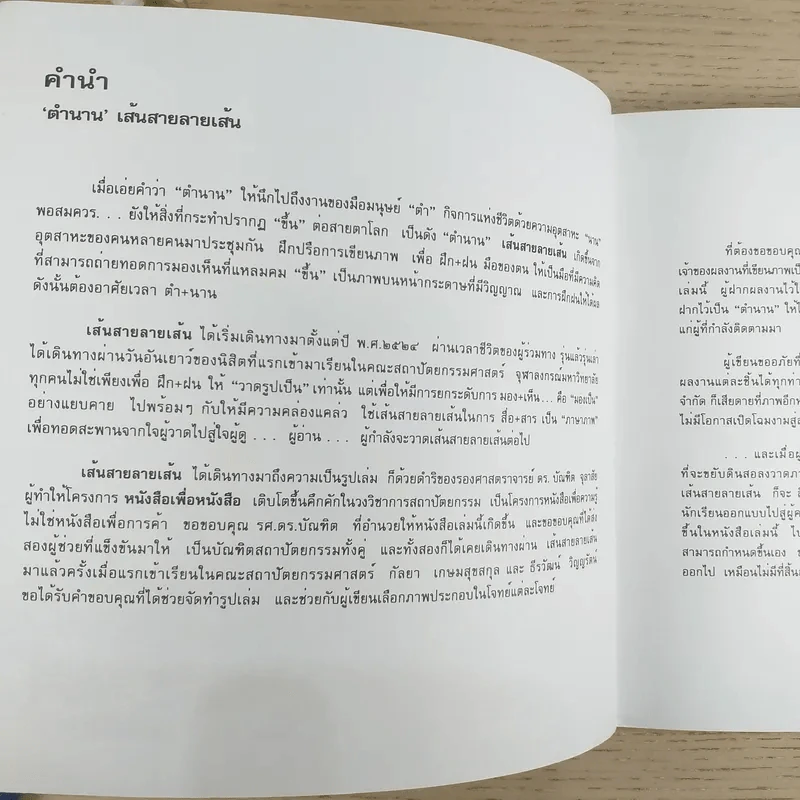 คำนำ
‘ตำนาน’ เส้นสายลายเส้น
เมื่อเอ่ยคำว่า “ตำนาน” ให้นึกไปถึงงานของมือมนุษย์ “ตำ” กิจการแห่งชีวิตด้วยความอุตสาหะ “นาน”
พอสมควร. . . ยังให้สิ่งที่กระทำปรากฏ “ขึ้น” ต่อสายตาโลก เป็นดัง “ตำนาน” เส้นสายลายเส้น เกิดขึ้นจาก
อุตสาหะของคนหลายคนมาประชุมกัน ฝึกปรือการเขียนภาพ เพื่อ ฝึก+ฝน มือของตน ให้เป็นมือที่มีความคิด
ที่สามารถถ่ายทอดการมองเห็นที่แหลมคม “ขึ้น” เป็นภาพบนหน้ากระดาษที่มีวิญญาณ และการฝึกฝนให้ได้ผล
ดังนั้นต้องอาศัยเวลา ตำ+นาน
เส้นสายลายเส้น ได้เริ่มเดินทางมาตั้งแต่ปี พ.ศ.๒๕๒๔ ผ่านเวลาชีวิตของผู้ร่วมทาง รุ่นแล้วรุ่นเล่า
ได้เดินทางผ่านวันอันเยาว์ของนิสิตที่แรกเข้ามาเรียนในคณะสถาปัตยกรรมศาสตร์ จุฬาลงกรณ์มหาวิทยาลัย
ทุกคนไม่ใช่เพียงเพื่อ ฝึก+ฝน ให้ “วาดรูปเป็น” เท่านั้น แต่เพื่อให้มีการยกระดับการ มอง+เห็น . . . คือ “มองเป็น”
อย่างแยบคาย ไปพร้อมๆ กับให้มีความคล่องแคล่ว ใช้เส้นสายลายเส้นในการ สื่อ+สาร เป็น “ภาษาภาพ”
เพื่อทอดสะพานจากใจผู้วาดไปสู่ใจผู้ดู . . . ผู้อ่าน . . . ผู้กำลังจะวาดเส้นสายลายเส้นต่อไป
เส้นสายลายเส้น ได้เดินทางมาถึงความเป็นรูปเล่ม ก็ด้วยดำริของรองศาสตราจารย์ ดร. บัณฑิต จุลาสัย
ผู้ทำให้โครงการ หนังสือเพื่อหนังสือ เติบโตขึ้นคึกคักในวงวิชาการสถาปัตยกรรม เป็นโครงการหนังสือเพื่อความรู้
ไม่ใช่หนังสือเพื่อการค้า ขอขอบคุณ รศ.ดร.บัณฑิต ที่อำนวยให้หนังสือเล่มนี้เกิดขึ้น และขอขอบคุณที่ได้ส่ง
สองผู้ช่วยที่แข็งขันมาให้ เป็นบัณฑิตสถาปัตยกรรมทั้งคู่ และทั้งสองก็ได้เคยเดินทางผ่าน เส้นสายลายเส้น
มาแล้วครั้งเมื่อแรกเข้าเรียนในคณะสถาปัตยกรรมศาสตร์ กัลยา เกษมสุขสกุล และ ธีรวัฒน์ วิญญูรัตน์
ขอได้รับคำขอบคุณที่ได้ช่วยจัดทำรูปเล่ม และช่วยกับผู้เขียนเลือกภาพประกอบในโจทย์แต่ละโจทย์
ที่ต้องขอขอบคุณ
เจ้าของผลงานที่เขียนภาพเป็
เล่มนี้ ผู้ฝากผลงานไว้ใ
ฝากไว้เป็น “ตำนาน” ให้ไ
แก่ผู้ที่กำลังติดตามมา
ผู้เขียนขออภัยที่
ผลงานแต่ละชิ้นได้ทุกท่า
จำกัด ก็เสียดายที่ภาพอีก
ไม่มีโอกาสเปิดโฉมงามสู่ส
. . . และเมื่อผู้
ที่จะขยับดินสอลงวาดภา
เส้นสายลายเส้น ก็จะ
นักเรียนออกแบบไปสู่ผู้ค
ขึ้นในหนังสือเล่มนี้ ไป
สามารถกำหนดขึ้นเอง
ออกไป เหมือนไม่มีที่สิ้น